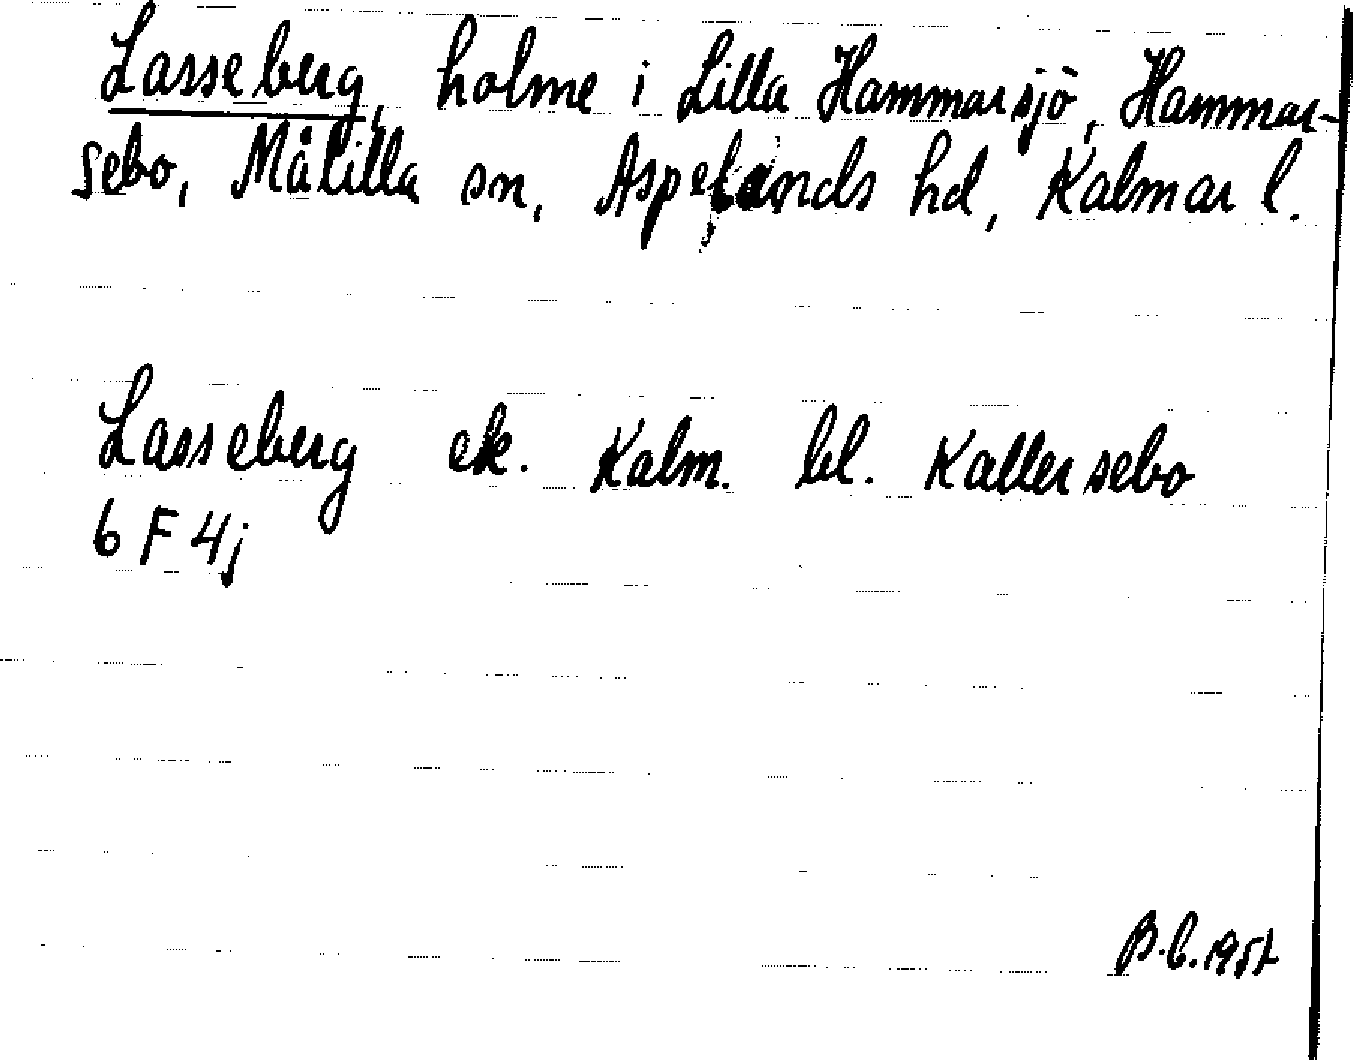 Lasseberg, holme i Lilla Hammarsjö, Hammar-
sebo, Målilla sn, Aspelands hd, Kalmar l.
Lasseberg ek. Kalm. bl. Kallersebo
6 F 4j